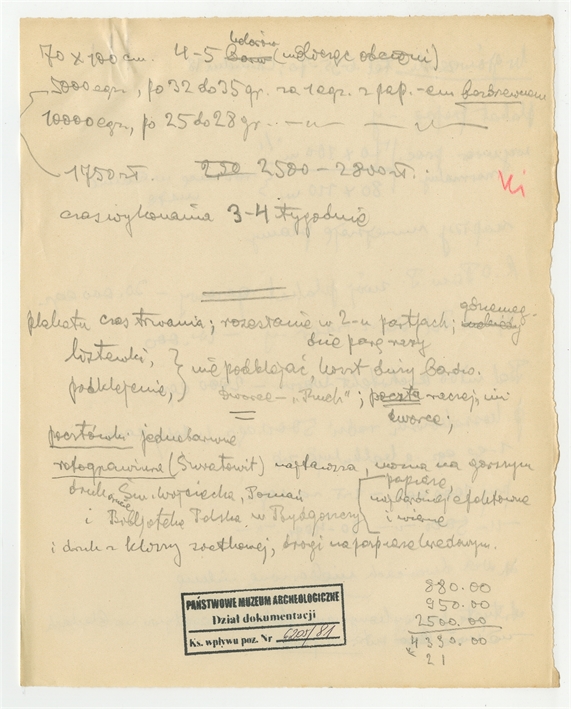 70 x 100 cm. 4-5 kolorów
5000 egz., po 32 do 35 gr. za 1 egz. z pap.-em bezdrzewnem
10000 egz., po 25 do 28 gr. -„- -„-
1750 zł 250 2500 - 2800 zł.
Ki
czas wykonania 3-4 tygodnie
plakatu czas trwania; rozesłanie w 2-u partjach;
nie podklejać, koszt duży bardzo.
podklejenie,
"Ruch"; poczta raczej, niż
dworce;
pocztówki jednobarwne
rotograwiura (Światowit) najtańsza, można na gorszym
papierze,
druk. Św. Wojciecha, Poznań
najbardziej efektowne
i Bibljoteka Polska w Bydgoszczy
i wierne
i druk z kliszy siatkowej, drogi na papierze kredowym.
880.00
950.00
2500.00
4330.00
21
PAŃSTWOWE MUZEUM ARCHEOLOGICZNE
Dział dokumentacji
Ks. wpływu poz. Nr